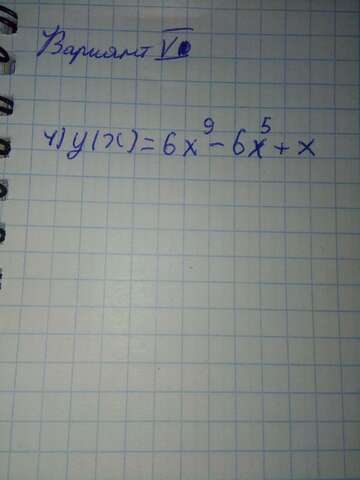 Вариант V
4) y(x) = 6x⁹ - 6x⁵ + x